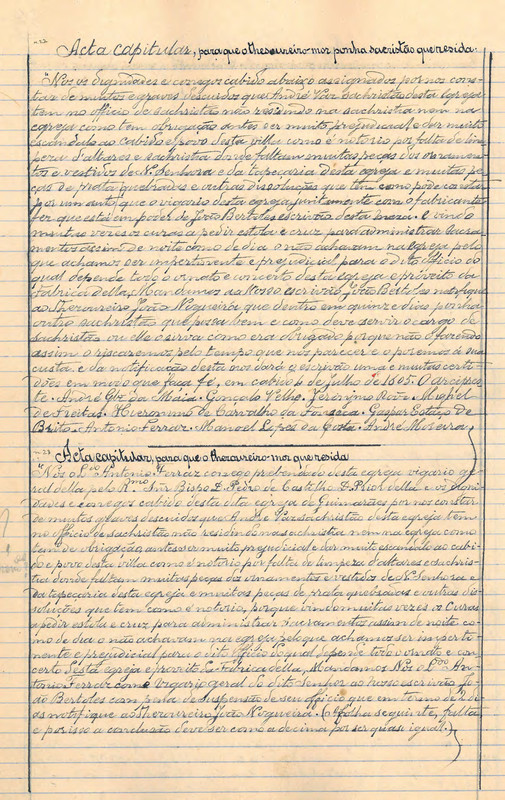 Acta capitular, para que o thesoureiro-mor ponha sacristão que resida.
"Nós os dignidades e conegos cabido abaixo assignados por nos cons-
tar de muitos e graves descuidos que André Vaz sachristão desta egreja
tem no officio de sachristão não residindo na sachristia nem na
egreja como tem obrigação antes ser muito prejudicial e dar muito
escandalo ao cabido e povo desta villa como é notorio por falta de lim
peza d'altares e sachristia donde faltam muitas peças dos ornamen
tos e vestidos de N. Senhora e da tapeçaria desta egreja e muitas pe
ças de prata quebradas e outras dissoluções que tem como póde constar
por um auto que o vigario desta egreja juntamente com o fabricante
fez que está em poder de João Bertoles escrivão desta meza. E vindo
muitas vezes os curas a pedir estola e cruz para administrar os sacra
mentos assim de noite como de dia o não achavam na egreja pelo
que achamos ser impertinente e prejudicial para o dito officio do
qual depende todo o ornato e concerto desta egreja e proveito da
Fabrica della, Mandamos ao nosso escrivão João Bertoles notifique
ao Thesoureiro João Nogueira que dentro em quinze dias ponha
outro sachristão que possa bem e como deve servir o cargo de
sachristão ou elle o sirva como era obrigado porque não o fazendo
assim o riscaremos pelo tempo que nos parecer e o poremos á sua
custa e da notificação desta nos dará o escrivão uma e muitas certi
dões em modo que faça fé, em cabido 4 de julho de 1605. O arcipres
te. André Glz da Maia. Gonçalo Velho. Jeronymo Miguel
de Freitas. Hieronimo de Carvalho da Fonseca. Gaspar Estaço de
Brito. Antonio Ferraz. Manoel Lopes da Costa. André Moreira
23
Acta capitular, para que o thesoureiro-mor que resida
"Nós o L.do Antonio Ferraz conego prebendado desta egreja vigario ge
ral della pelo R.mo Snr Bispo D. Pedro de Castelho D. Prior della e os digni
dades e conegos cabido desta dita egreja de Guimarães por nos constar
de muitos graves descuidos que André Vaz sachristão desta egreja tem
no officio de sachristão não residindo na sachristia nem na egreja como
tem de obrigação antes ser muito prejudicial e dar muito escandalo ao cabi
do e povo desta villa como é notorio por falta de limpeza d'altares e sachris
tia donde faltam muitas peças dos ornamentos e vestidos de N. Senhora e
da tapeçaria desta egreja e muitas peças de prata quebradas e outras dis
soluções que tem como é notorio, porque vindo muitas vezes os Curas
a pedir estola e cruz para administrar sacramentos assim de noite co
mo de dia o não achavam na egreja pelo que achamos ser imperti
nente e prejudicial para o dito officio do qual depende todo o ornato e con
certo desta egreja e proveito da Fabrica della, Mandamos Nós o L.do An
tonio Ferraz como Vigario geral do dito Senhor ao nosso escrivão Jo
ão Bertoles com pena de suspensão de seu officio que em termo de
dias notifique ao Thesoureiro João Nogueira. (A folha seguinte, falta,
e por isso a conclusão deve ser como a de cima por ser quasi igual.)